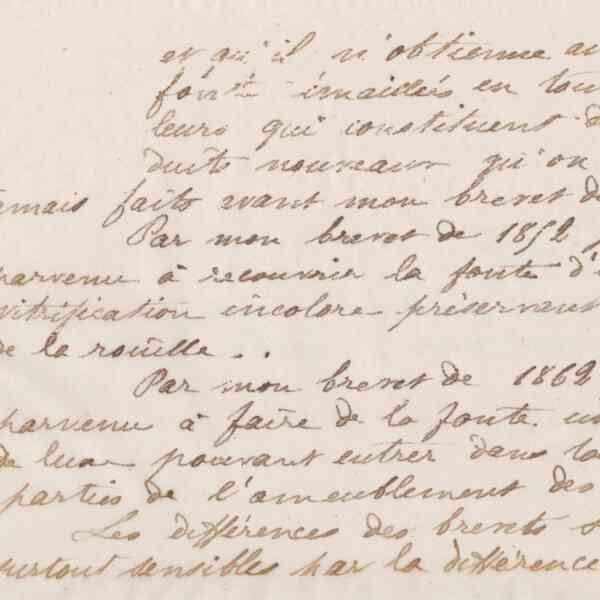 et qu'il n'obtienne au
fonte émaillés en tou
leurs qui constituent d
duits nouveaux qu'on
amais faits avant mon brevet de
Par mon brevet de 1852
parvenu à recouvrir la fonte d'u
vitrification incolore préservant
de la rouille.
Par mon brevet de 1862
parvenu à faire de la fonte un
de luxe pouvant entrer dans to
parties de l'ameublement des
Les différences des brevets s
surtout sensibles par la différence